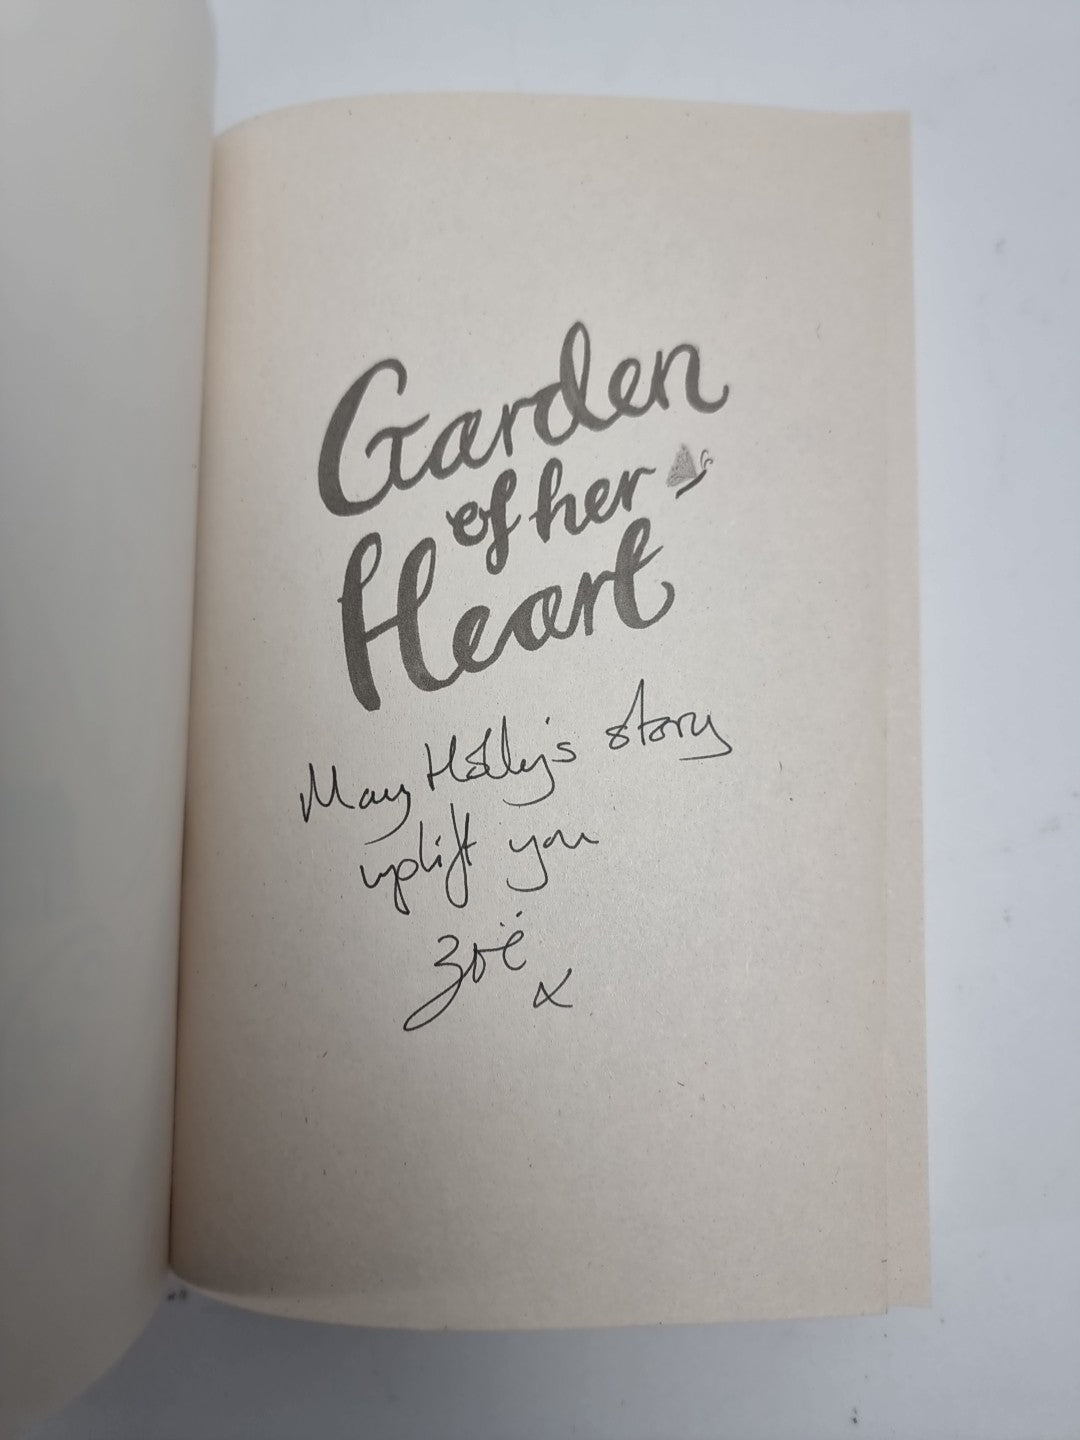 Garden
of her
Heart
May Holly's story
uplift you
Zoë
x